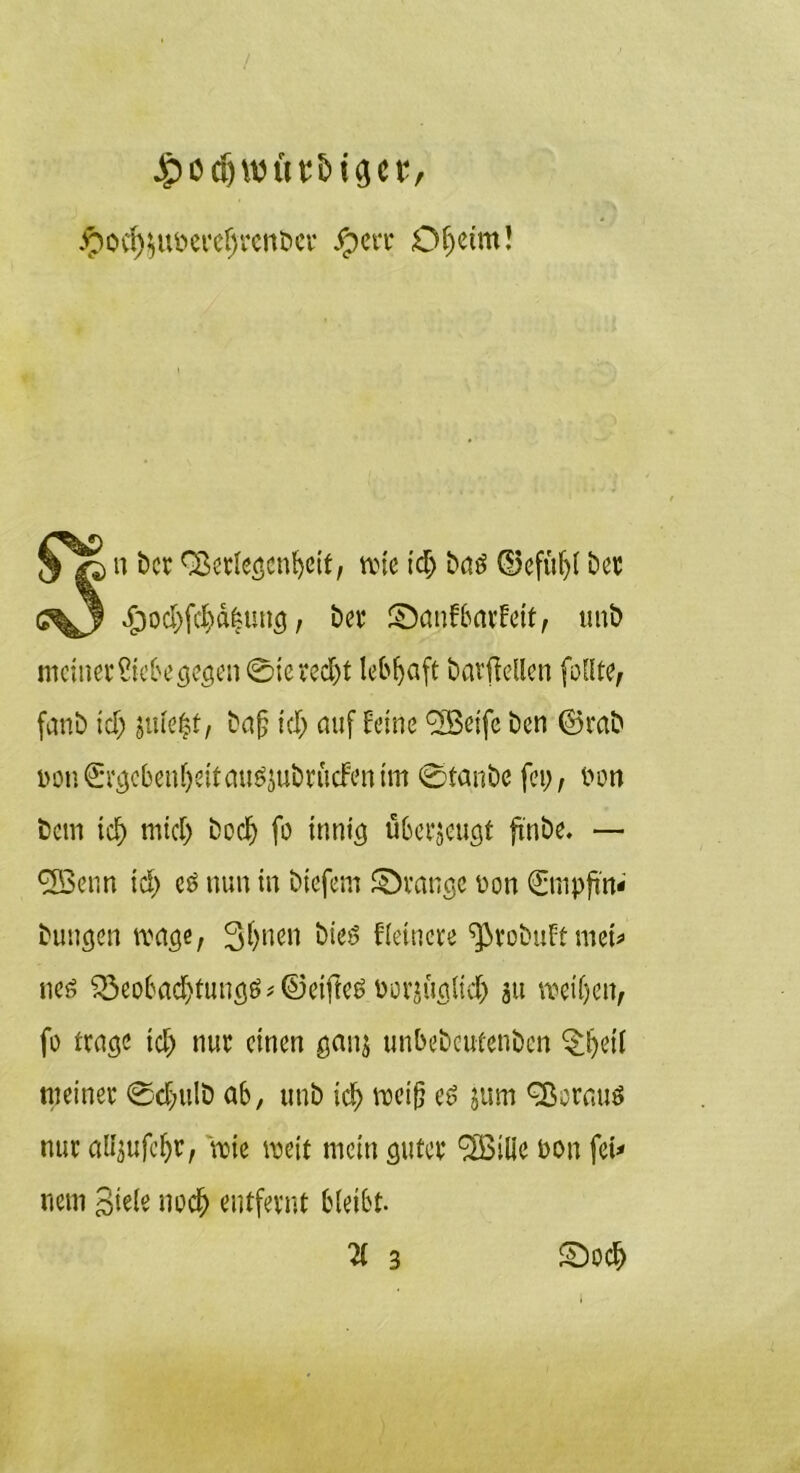 Hochwürdiger,
Hochzuverehrender Herr Oheim!
In der Verlegenheit, wie ich das Gefühl der
Hochschätzung, der Dankbarkeit, und
meiner Liebe gegen Sie recht lebhaft darstellen sollte,
fand ich zuletzt, daß ich auf keine Weise den Grad
von Ergebenheit auszudrücken im Stande sey, von
dem ich mich doch so innig überzeugt finde. —
Wenn ich es nun in diesem Drange von Empfin-
dungen wage, Ihnen dies kleinere Produkt mei-
nes Beobachtungs-Geistes vorzüglich zu weihen,
so trage ich nur einen ganz unbedeutenden Theil
meiner Schuld ab, und ich weiß es zum Voraus
nur allzusehr, wie weit mein guter Wille von sei-
nem Ziele noch entfernt bleibt.
A 3 Doch